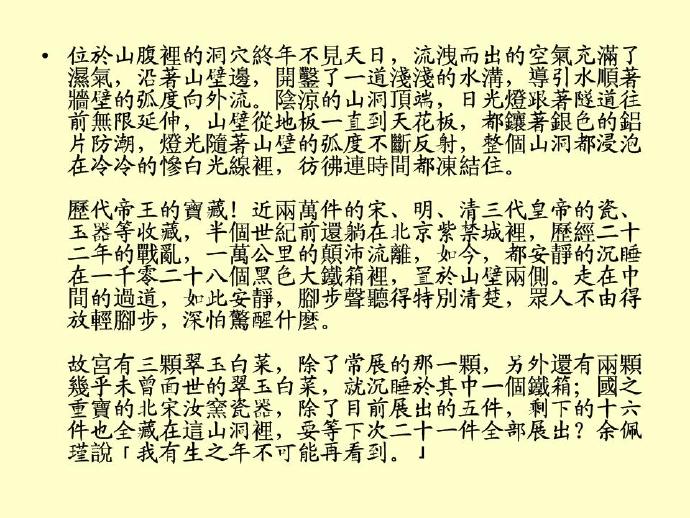 • 位於山腹裡的洞穴終年不見天日，流洩而出的空氣充滿了
濕氣，沿著山壁邊，開鑿了一道淺淺的水溝，導引水順著
牆壁的弧度向外流。陰涼的山洞頂端，日光燈跟著隧道往
前無限延伸，山壁從地板一直到天花板，都鑲著銀色的鋁
片防潮，燈光隨著山壁的弧度不斷反射，整個山洞都浸泡
在冷冷的慘白光線裡，彷彿連時間都凍結住。
歷代帝王的寶藏！近兩萬件的宋、明、清三代皇帝的瓷、
玉器等收藏，半個世紀前還躺在北京紫禁城裡，歷經二十
二年的戰亂，一萬公里的顛沛流離，如今，都安靜的沉睡
在一千零二十八個黑色大鐵箱裡，置於山壁兩側。走在中
間的過道，如此安靜，腳步聲聽得特別清楚，眾人不由得
放輕腳步，深怕驚醒什麼。
故宮有三顆翠玉白菜，除了常展的那一顆，另外還有兩顆
幾乎未曾面世的翠玉白菜，就沉睡於其中一個鐵箱；國之
重寶的北宋汝窯瓷器，除了目前展出的五件，剩下的十六
件也全藏在這山洞裡，要等下次二十一件全部展出？余佩
瑾說「我有生之年不可能再看到。」